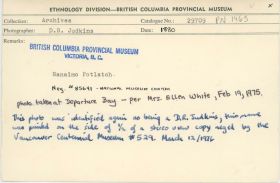 ETHNOLOGY DIVISION—BRITISH COLUMBIA PROVINCIAL MUSEUM
Collection: Archives Catalogue No.: 29709 PN 1463
Photographer: D.R. Judkins Date: 1880
Remarks:
BRITISH COLUMBIA PROVINCIAL MUSEUM
VICTORIA, B. C.
Nanaimo Potlatch.
Neg. #85691 - NATIONAL MUSEUM CANADA
photo taken at Departure Bay — per Mrs. Ellen White, Feb 19, 1975.
This photo was identified again as being a D.R. Judkins, this name
was printed on the side of ½ of a stereo view copy neged by the
Vancouver Centennial Museum #529. March 12/1976